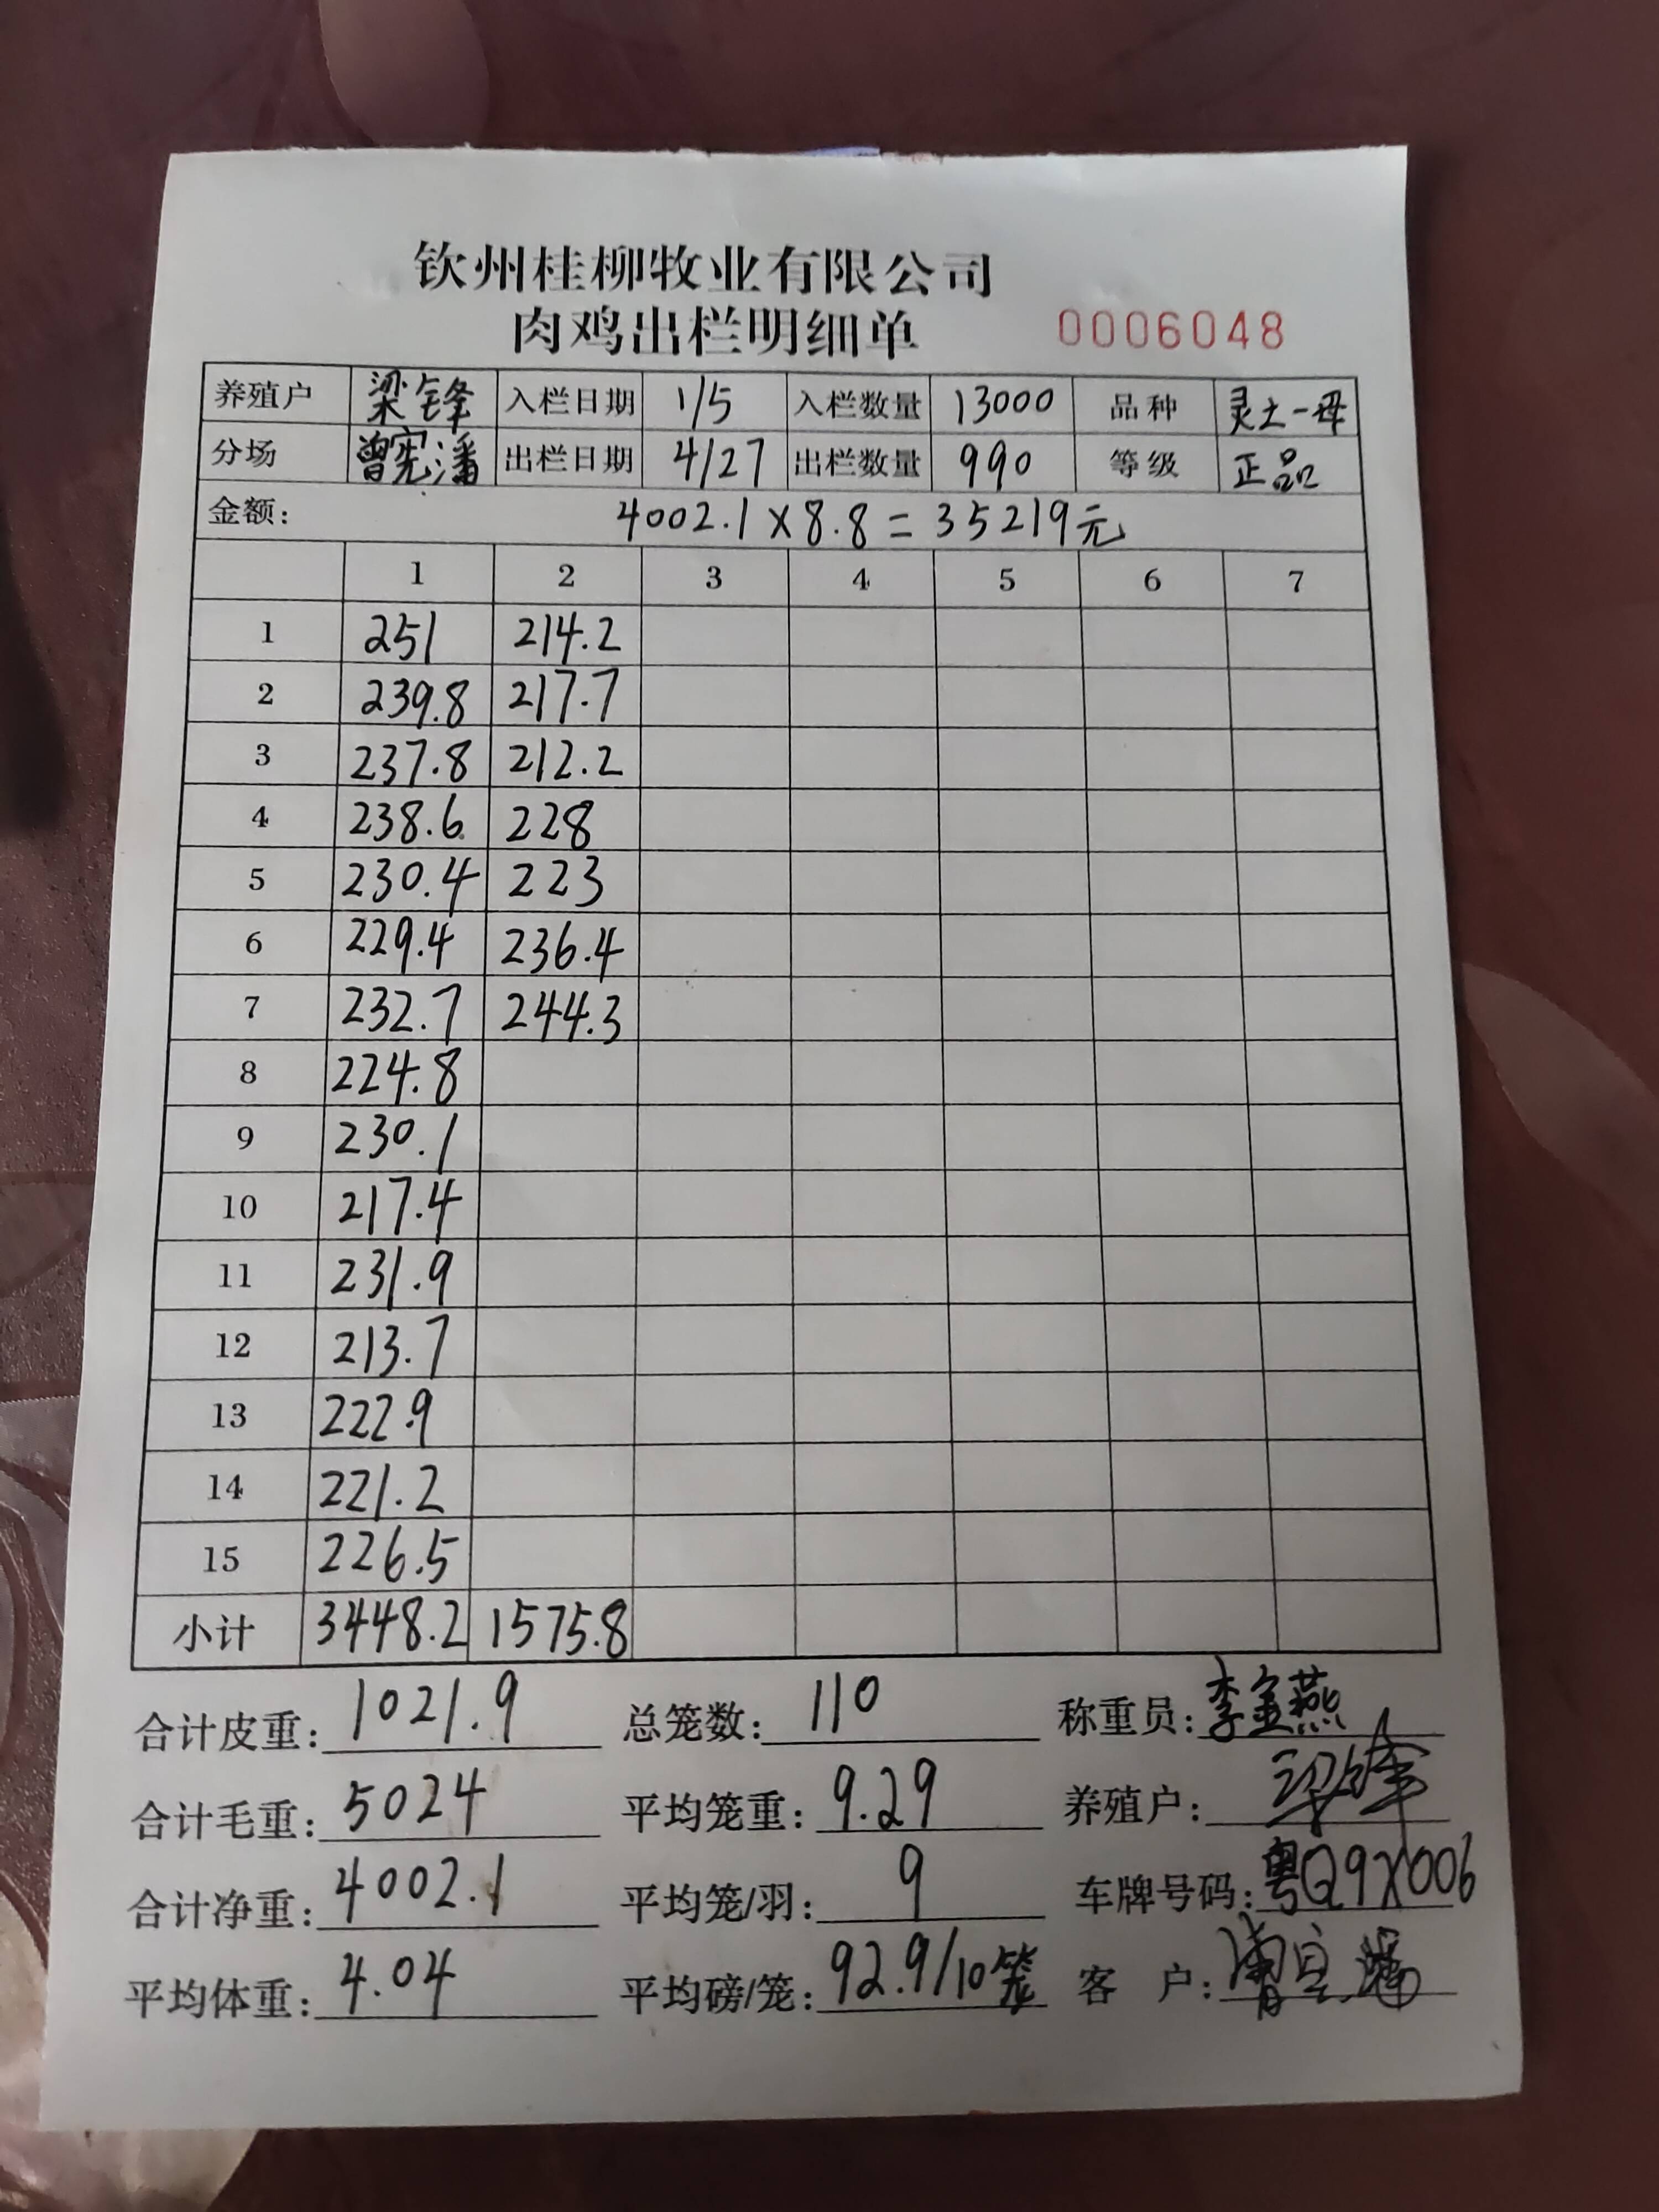 钦州桂柳牧业有限公司
肉鸡出栏明细单 0006048
养殖户 梁锋 入栏日期 1/5 入栏数量 13000 品种 灵土一母
分场 曾宪潘 出栏日期 4/27 出栏数量 990 等级 正品
金额: 4002.1×8.8=35219元
1 2 3 4 5 6 7
1 251 214.2
2 239.8 217.7
3 237.8 212.2
4 238.6 228
5 230.4 223
6 229.4 236.4
7 232.7 244.3
8 224.8
9 230.1
10 217.4
11 231.9
12 213.7
13 222.9
14 221.2
15 226.5
小计 3448.2 1575.8
合计皮重: 1021.9 总笼数: 110 称重员: 李金燕
合计毛重: 5024 平均笼重: 9.29 养殖户: 梁锋
合计净重: 4002.1 平均笼/羽: 9 车牌号码: 粤Q9X006
平均体重: 4.04 平均磅/笼: 92.9/10笼 客 户: